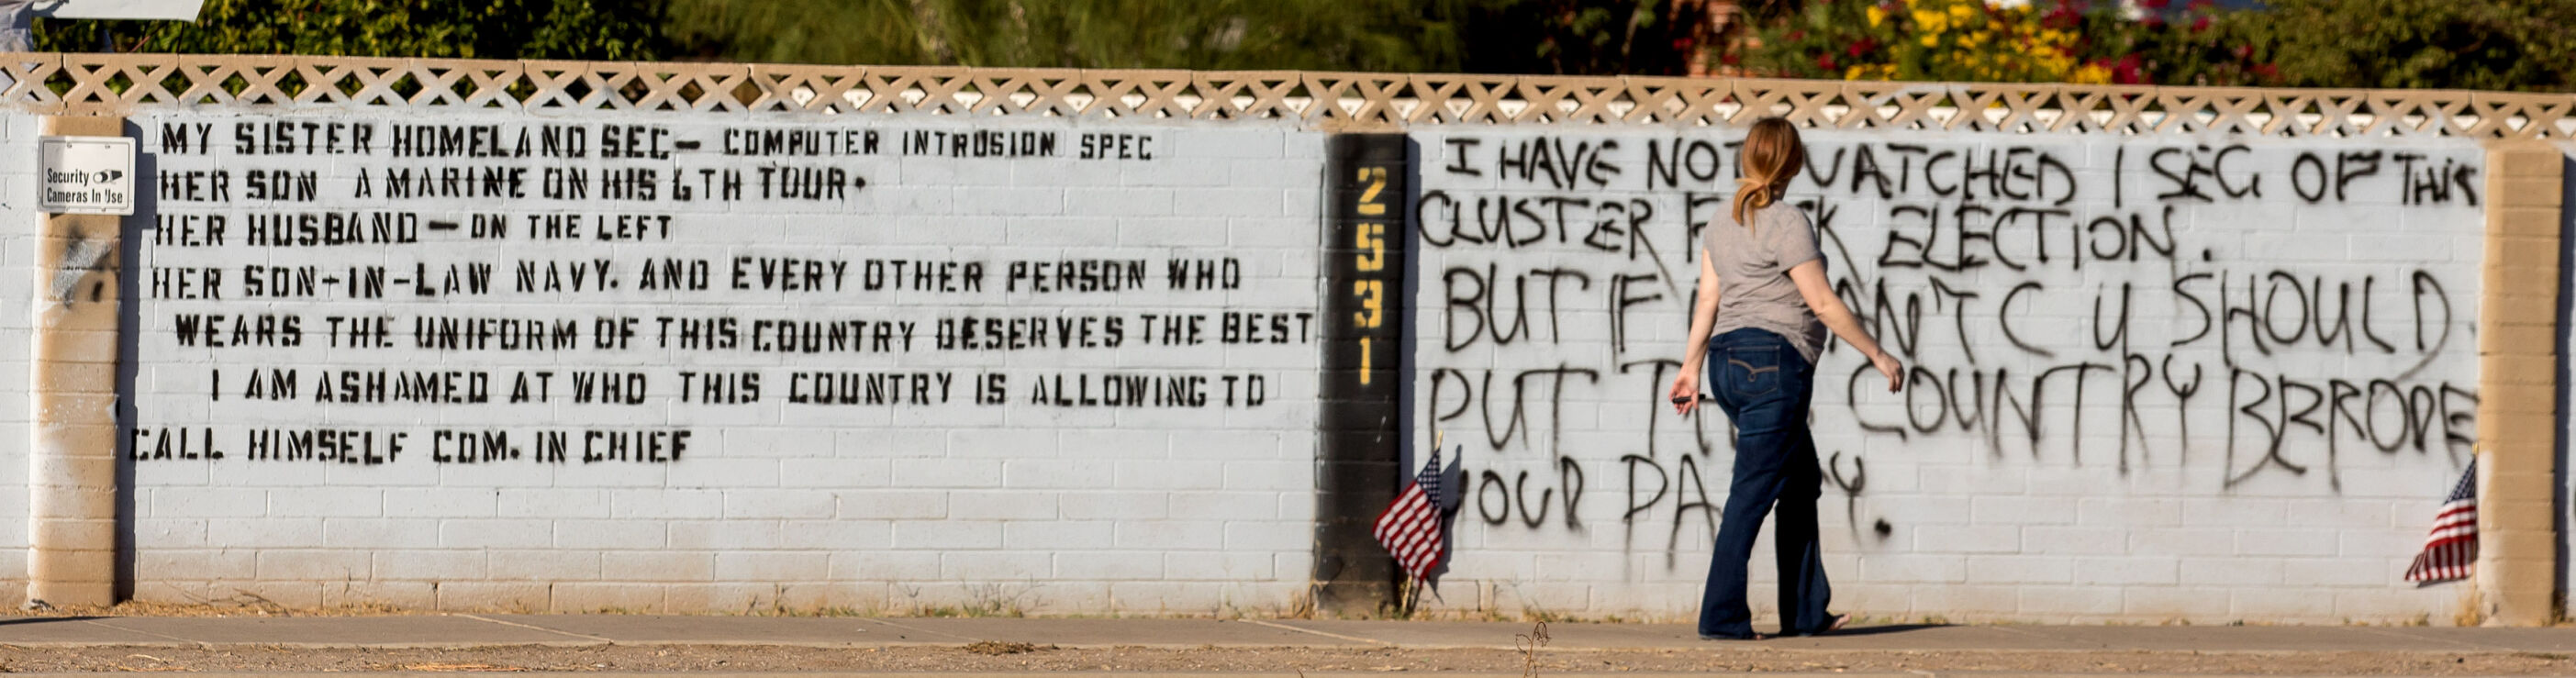 Security
Cameras In Use
MY SISTER HOMELAND SEC- COMPUTER INTRUSION SPEC
HER SON A MARINE ON HIS 6TH TOUR.
HER HUSBAND - ON THE LEFT
HER SON-IN-LAW NAVY. AND EVERY OTHER PERSON WHO
WEARS THE UNIFORM OF THIS COUNTRY DESERVES THE BEST
I AM ASHAMED AT WHO THIS COUNTRY IS ALLOWING TO
CALL HIMSELF COM. IN CHIEF
2531
I HAVE NOT WATCHED 1 SEC. OF THIS
CLUSTER ELECTION.
BUT IF C U SHOULD
PUT COUNTRY B3RODE
YOUR